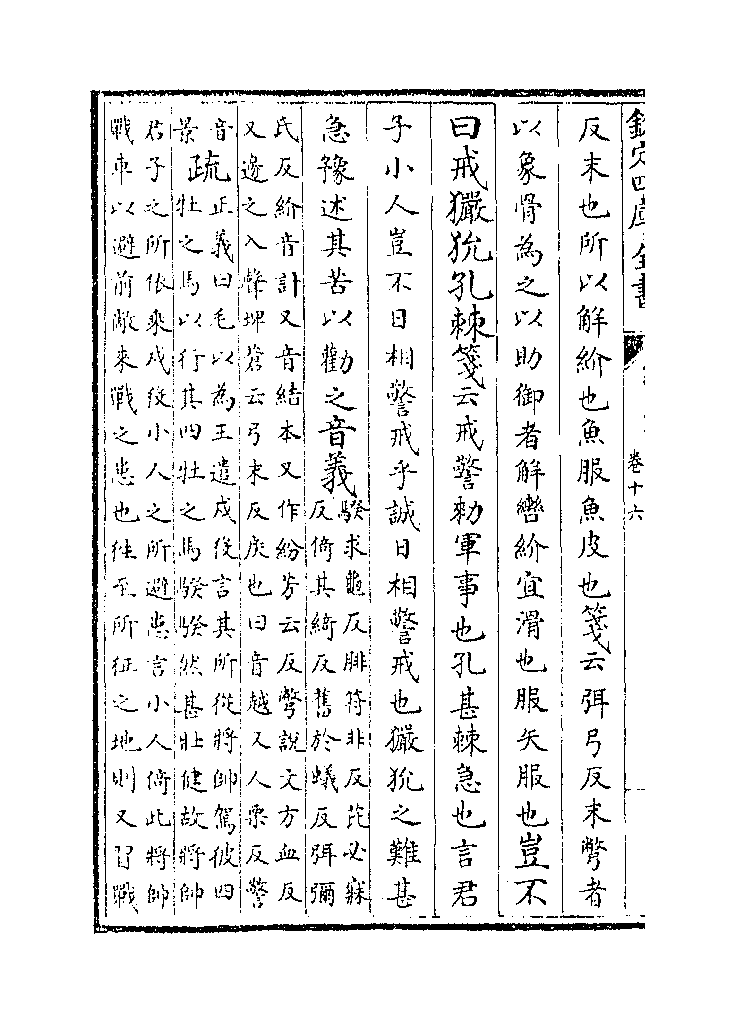 欽定四庫全書
卷十六
反末也所以解紒也魚服魚皮也箋云弭弓反末彆者
以象骨為之以助御者解轡紒宜滑也服矢服也豈不
曰戒玁狁孔棘箋云戒警勑軍事也孔甚棘急也言君
子小人豈不日相警戒乎誠日相警戒也玁狁之難甚
急豫述其苦以勸之音義
騤求龜反腓符非反芘必寐
反倚其綺反舊於蟻反弭彌
氏反紒音計又音結本又作紛芳云反彆說文方血反
又邊之入聲埤蒼云弓末反戾也曰音越又人栗反警
音
景
疏
正義曰毛以為王遣戍役言其所從將帥駕彼四
牡之馬以行其四牡之馬騤騤然甚壯健故將帥
君子之所依乘戍役小人之所避患言小人倚此將帥
戰車以避前敵來戰之患也往至所征之地則又習戰